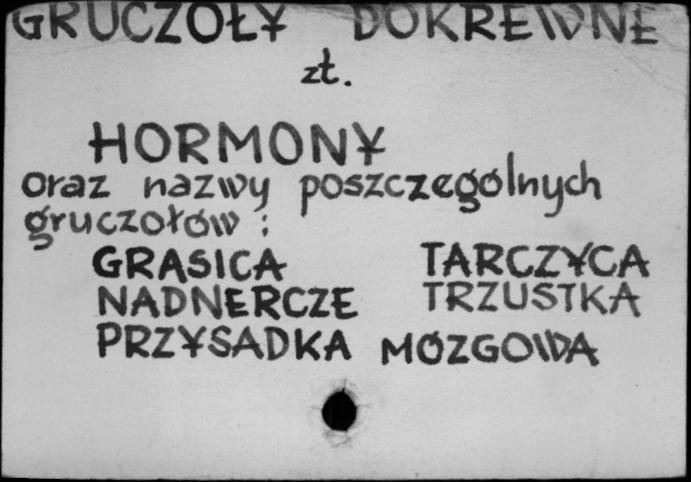 GRUCZOŁY DOKREWNE
zt.
HORMONY
oraz nazwy poszczególnych
gruczołów :
GRASICA TARCZYCA
NADNERCZE TRZUSTKA
PRZYSADKA MÓZGOWA